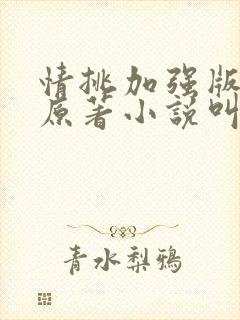 情挑加强版
原著小說叫
青水梨鴉